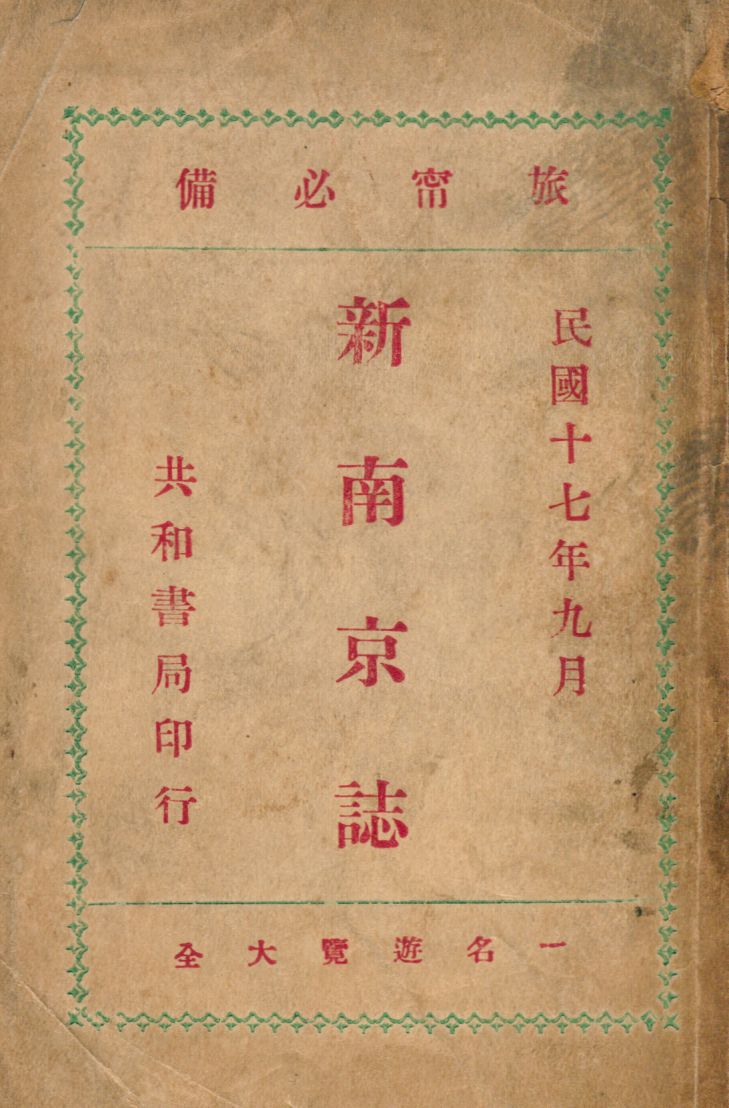 旅甯必備
民國十七年九月
新南京誌
共和書局印行
一名遊覽大全